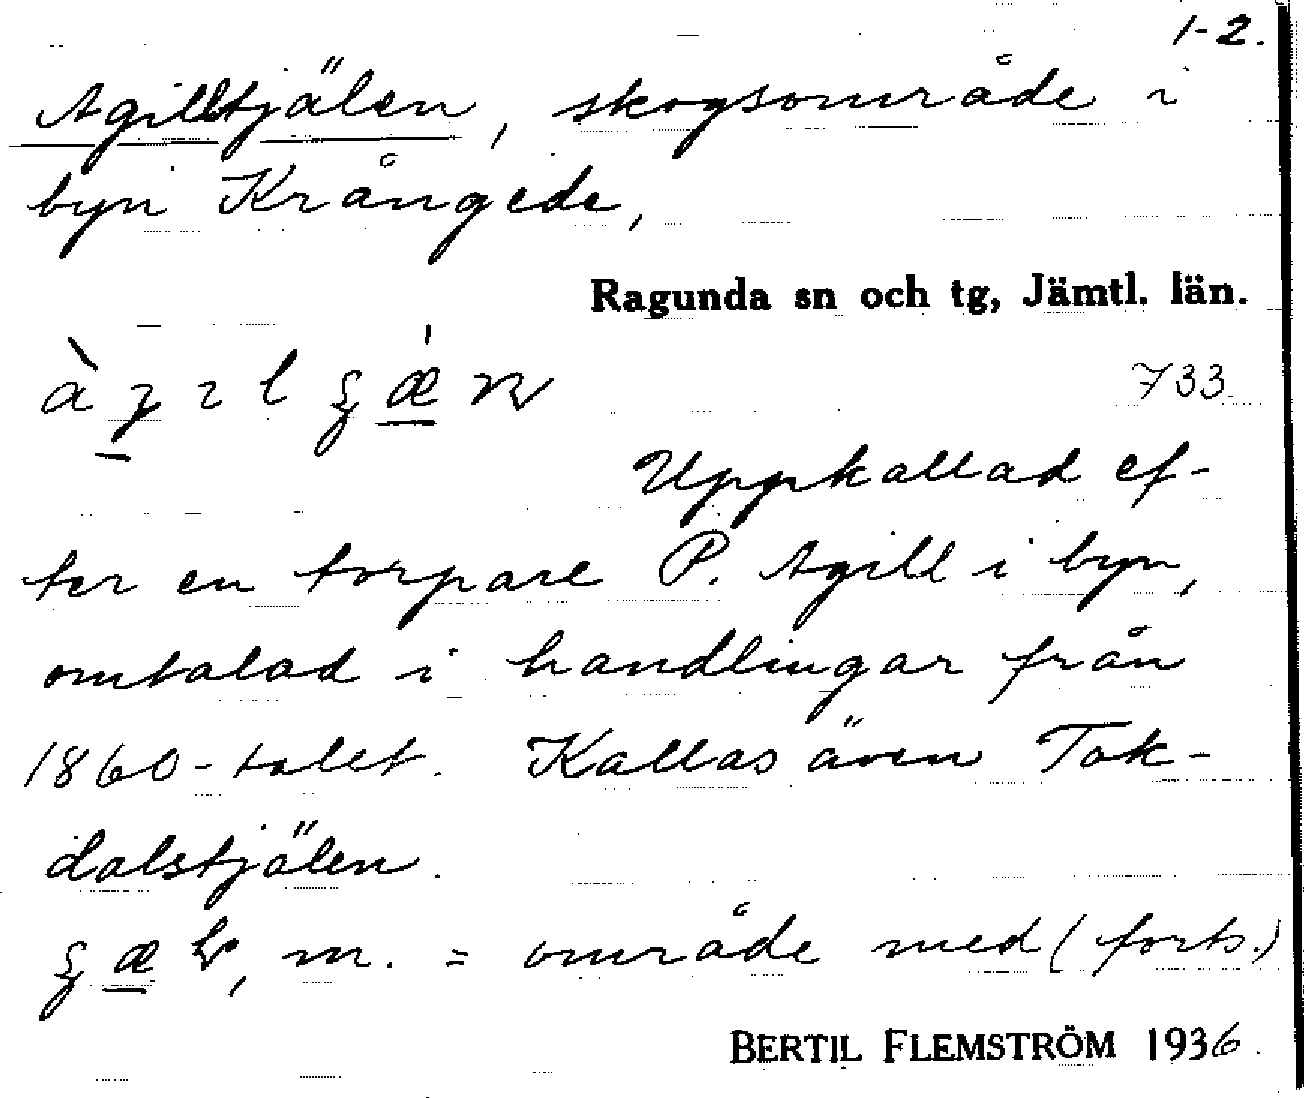 1-2.
Agilltjälen, skogsområde i
byn Krångede,
Ragunda sn och tg, Jämtl. län.
733
Uppkallad ef-
ter en torpare P. Agill i byn,
omtalad i handlingar från
1860-talet. Kallas även Tok-
dalstjälen.
m. = område med (forts.)
BERTIL FLEMSTRÖM 1936.